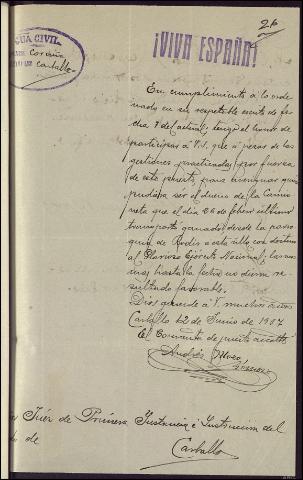 26
GUARDIA CIVIL
Coruña
Carballo
¡VIVA ESPAÑA!
En cumplimiento á lo orde
nado en su respetable escrito de fe
cha 7 del actual, tengo el honor de
participar á V.S. que á pesar de las
gestiones practicadas por fuerza
de este puesto, para averiguar quien
pudiera ser el dueño de la Camio
neta que el día 26 de febrero último
transportó ganado desde la parro
quia de Rodis á esta villa con destino
al Glorioso Ejército Nacional, las mis
mas hasta la fecha no dieron re
sultado favorable.
Dios guarde á V. muchos años
Carballo 12 de Junio de 1937
El Comandante de puesto acctal
Andrés
Juez de Primera Instancia é Instrucción del
de
Carballo